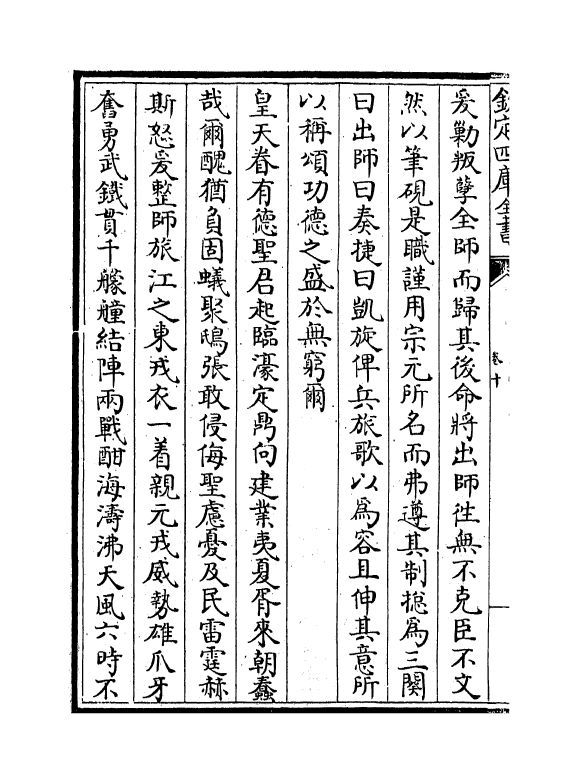 欽定四庫全書
卷十
爰勦叛孽全師而歸其後命將出師徃無不克臣不文
然以筆硯是職謹用宗元所名而弗遵其制揔為三闋
曰出師曰奏捷曰凱旋俾兵旅歌以為容且伸其意所
以稱頌功德之盛於無窮爾
皇天眷有德聖君起臨濠定鼎向建業夷夏胥來朝蠢
哉爾醜猶負固蟻聚鴟張敢侵侮聖慮憂及民雷霆赫
斯怒爰整師旅江之東戎衣一着親元戎威勢雄爪牙
奮勇武鐵貫千艨艟結陣兩戰酣海濤沸天風六時不